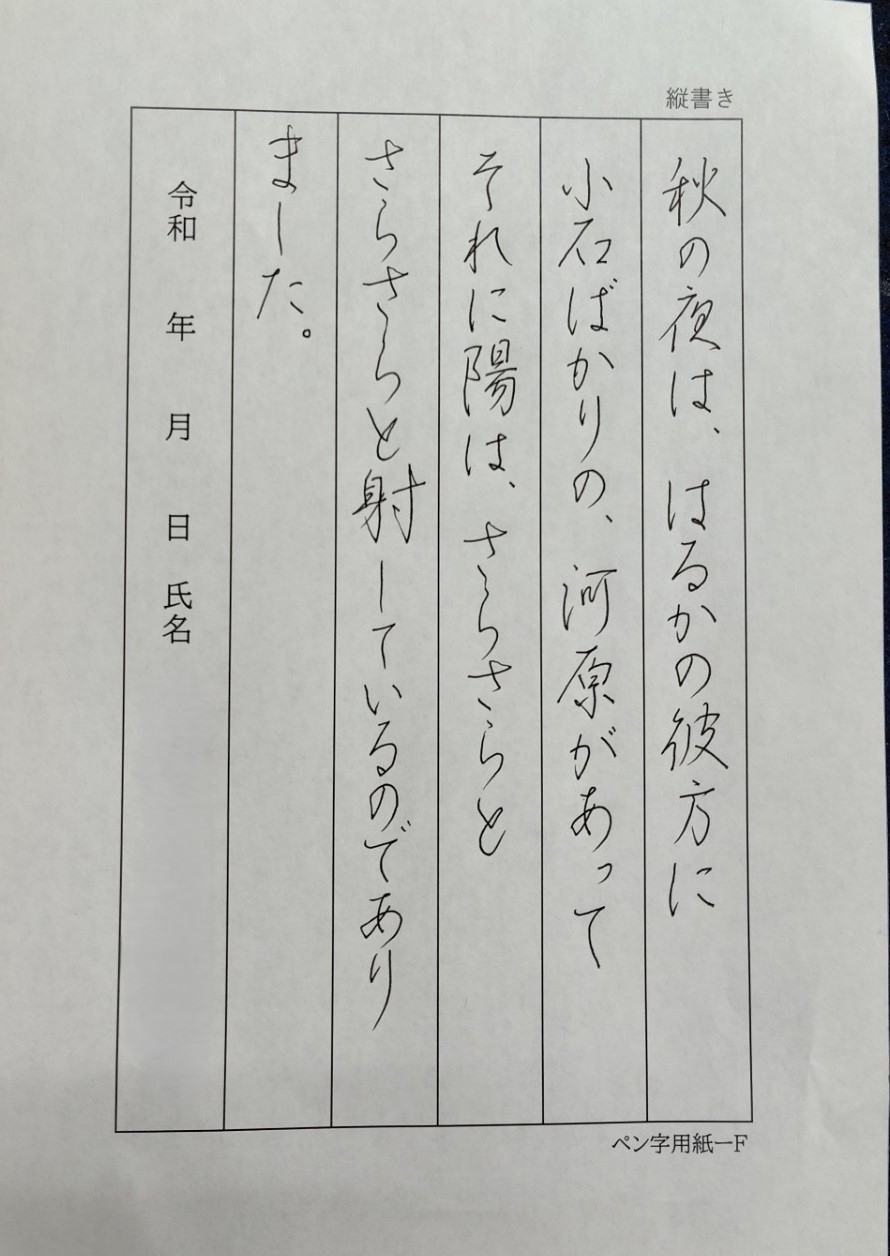 縦書き
秋の夜は、はるかの彼方に
小石ばかりの、河原があって
それに陽は、さらさらと
さらさらと射しているのであり
ました。
令和 年 月 日 氏名
ペン字用紙ーF